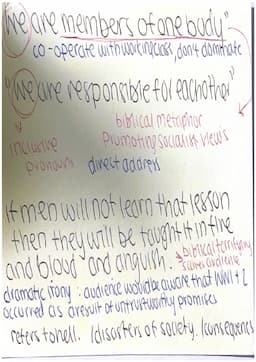 "We are members of one body"
co-operate with working class, don't dominate
"We are responsible for each other"
biblical metaphor
promoting socialist views
inclusive
pronouns
direct address
If men will not learn that lesson
then they will be taught it in fire
and blood and anguish.
biblical terrifying
scares audience
dramatic irony: audience would be aware that WW1 + 2
occurred as a result of untrustworthy promises
refers to hell. /disasters of society. /consequences